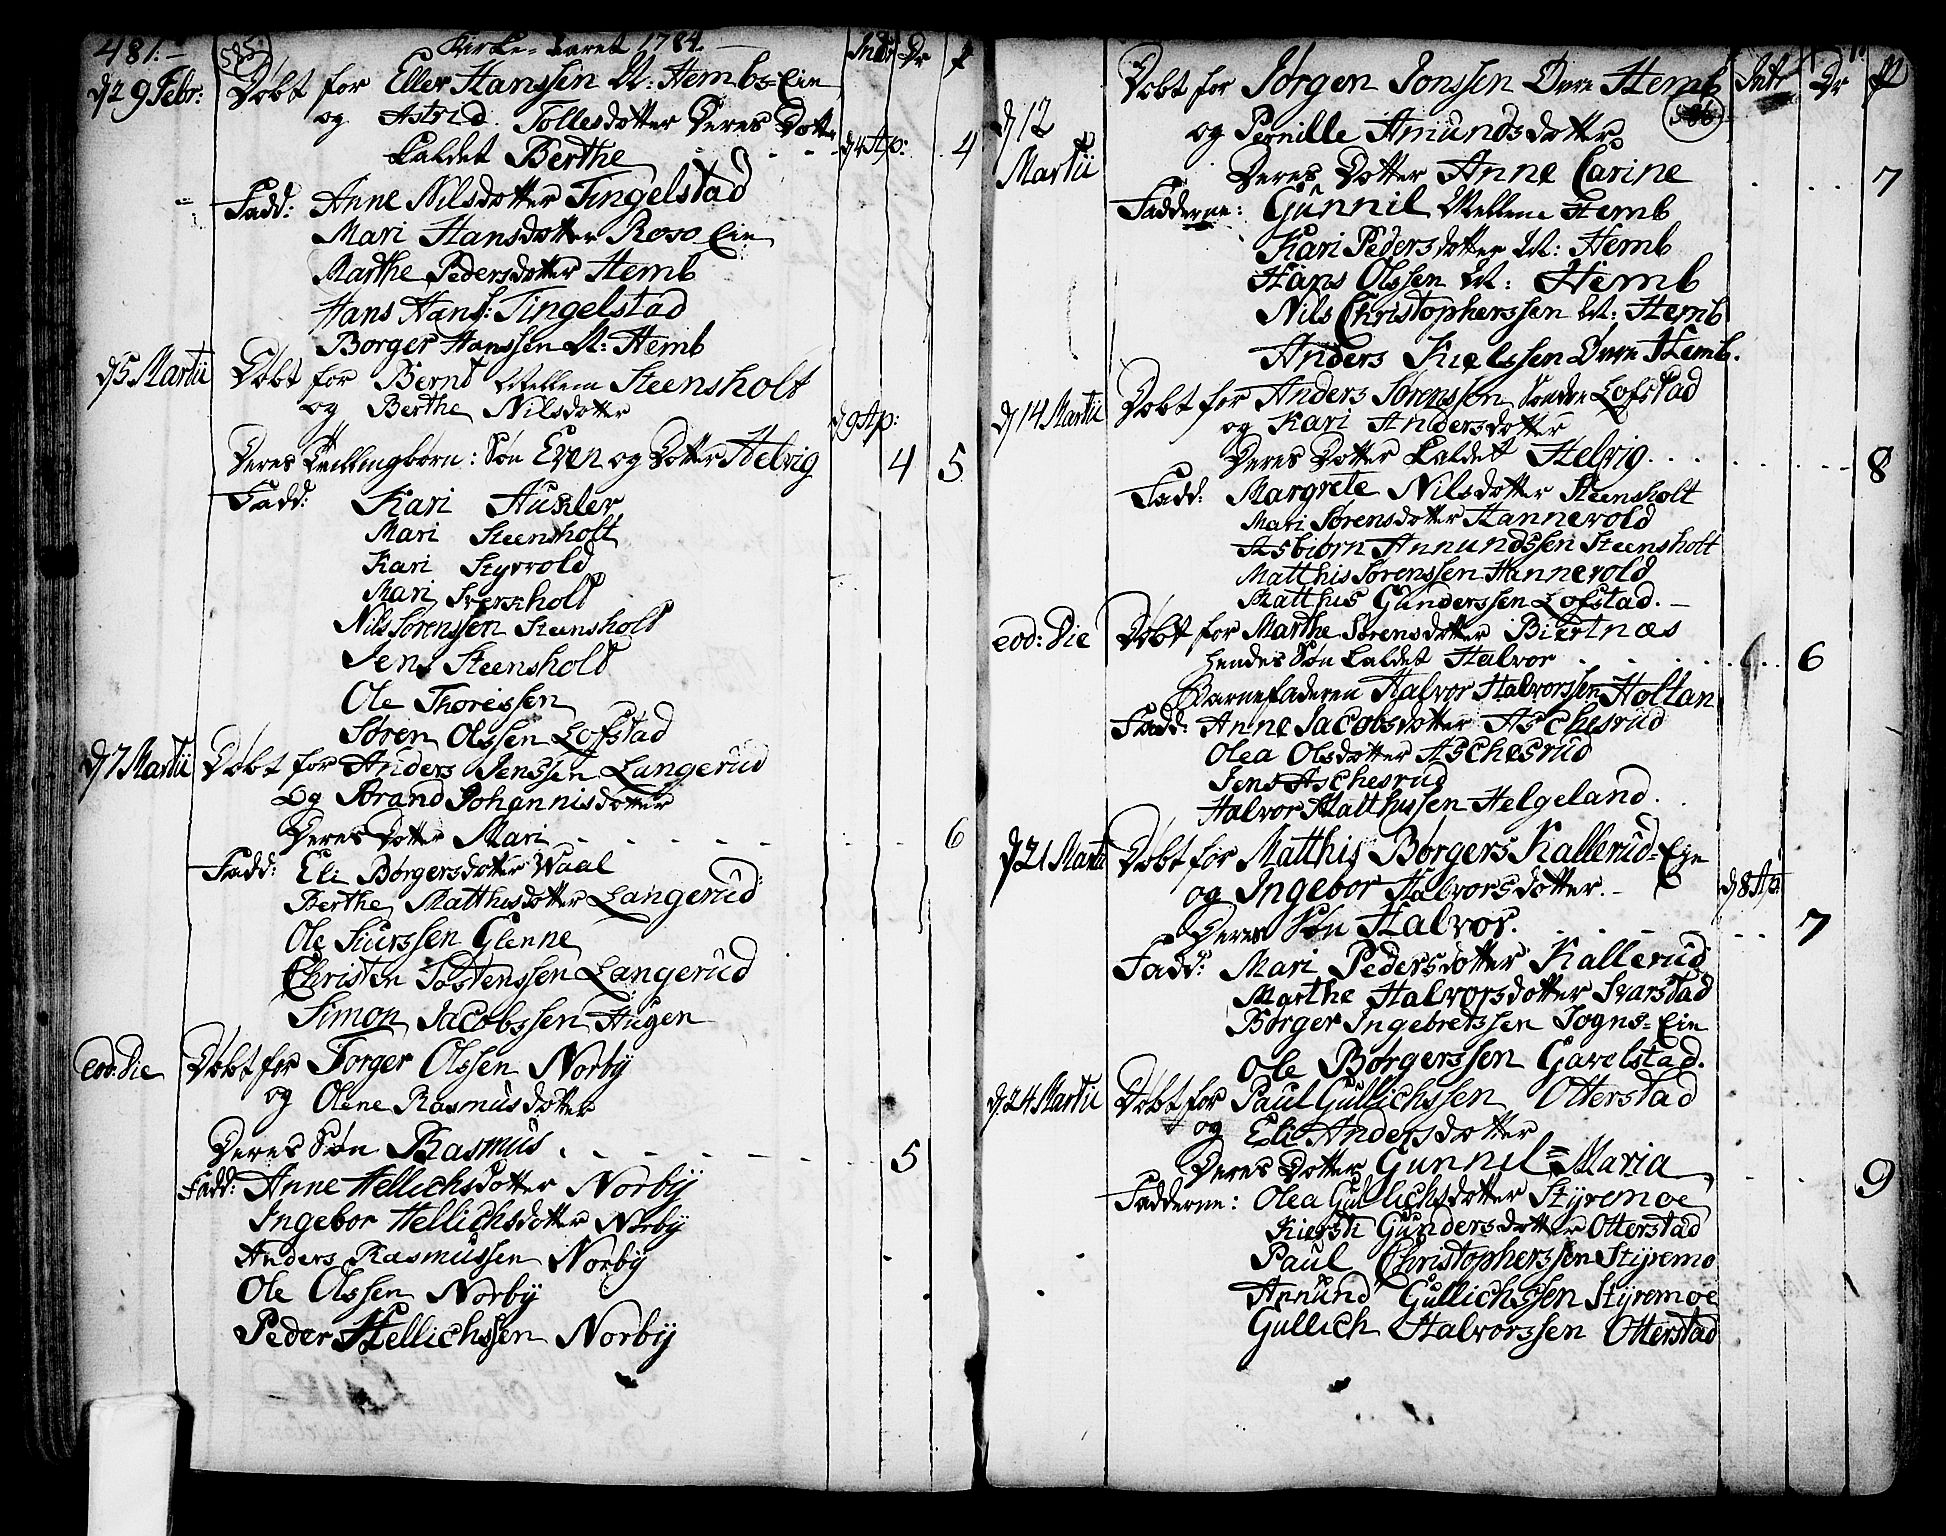 481.
585.
Kirke-Aaret 1784.
Intr Dr P
d 29 Febr: Døbt for Eller Hanssen N: Hembs-Eie
og Astrid Tollesdotter Deres Dotter
kaldet Berthe d 4 Ap: 4
Fadd: Anne Nilsdotter Tingelstad
Mari Hansdotter Roso Eie
Marthe Pedersdotter Hemb
Hans Hans: Tingelstad
Borger Hanssen N: Hemb
d 5 Martii Døbt for Bernt Mellem Steensholt
og Berthe Nilsdotter d 9 Ap:
Deres Tvillingbørn: Søn Even og Dotter Helvig 4 5
Fadd: Kari
Mari Steensholt
Kari Styrvold
Mari
Nils Sørenssen Steensholt
Jens Steensholt
Ole Thoressen
Søren Olssen Lofstad
d 7 Martii Døbt for Anders Jenssen Langerud
og Strand Johannisdotter
Deres Dotter Mari 6
Fadd: Eli Børgersdotter Waal
Berthe Matthisdotter Langerud
Ole Siurssen Glenne
Christen Tostenssen Langerud
Simon Jacobssen Haugen
eod: Die Døbt for Torger Olssen Norby
og Olene Rasmusdotter
Deres Søn Rasmus 5
Fadd: Anne Hellichsdotter Norby
Ingebor Hellichsdotter Norby
Anders Rasmussen Norby
Ole Olssen Norby
Peder Hellichssen Norby
586
Intr Dr P
d 12 Martii Døbt for Jørgen Jonssen Øvre Hemb
og Pernille Amundsdotter
Deres Dotter Anne Carine 7
Fadderne: Gunnil Mellem Hemb
Kari Pedersdotter N: Hemb
Hans Olssen N: Hemb
Nils Christopherssen N: Hemb
Anders Kielssen Øvre Hemb.
d 14 Martii Døbt for Anders Sørenssen Søndre Lofstad
og Kari Andersdotter
Deres Dotter kaldet Helvig 8
Fadd: Margrete Nilsdotter Steensholt
Mari Sørensdotter Hannevold
Asbiørn Annundssen Steensholt
Matthis Sørenssen Hannevold
Matthis Gunderssen Lofstad.
eod: Die Døbt for Marthe Sørensdotter Biertnæs
hendes Søn kaldet Halvor 6
Barnefaderen Halvor Halvorssen Holtan
Fadd: Anne Jacobsdotter Aschesrud
Olea Olsdotter Aschesrud
Jens Aschesrud
Halvor Matthissen Helgeland.
d 21 Martii Døbt for Matthis Børgers Kallerud-Eie
og Ingebor Halvorsdotter d 8 Ap:
Deres Søn Halvor. 7
Fadd: Mari Pedersdotter Kallerud
Marthe Halvorsdotter Svarstad
Børger Ingebretssen Sogns-Eie
Ole Børgerssen Gavelstad.
d 24 Martii Døbt for Paul Gullichssen Otterstad
og Eli Andersdotter
Deres Dotter Gunnil=Maria 9
Fadderne: Olea Gullichsdotter Styremoe
Kiersti Gundersdotter Otterstad
Paul Christopherssen Styremo
Annund Gullichssen Styremoe
Gullich Halvorssen Otterstad